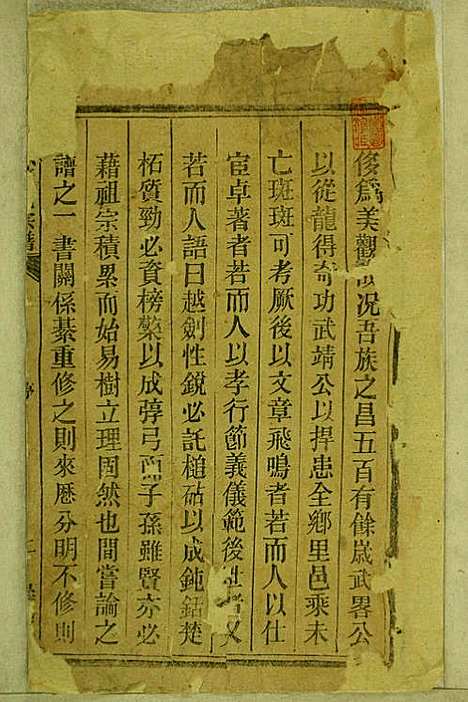 俊爲美觀況吾族之昌五百有餘歲武畧公
以從龍得奇功武靖公以捍患全鄉里邑乘未
亡斑斑可考厥後以文章飛鳴者若而人以仕
宦卓著者若而人以孝行節義儀範後世者又
若而人語曰越劍性銳必託槌砧以成鈍鈷楚
柘質勁必資榜檠以成弴弓而子孫雖賢亦必
藉祖宗積累而始易樹立理固然也間嘗論之
譜之一書關係綦重修之則來歷分明不修則